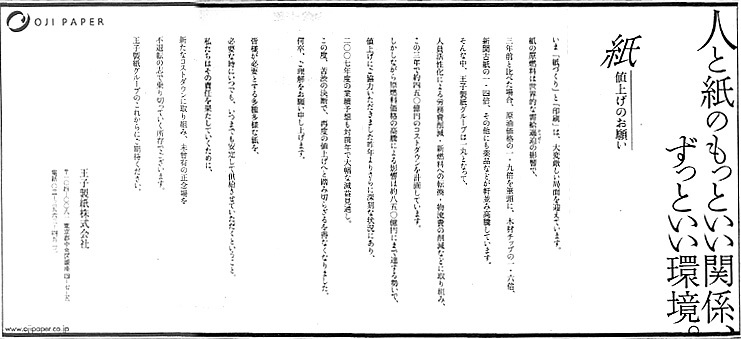 人と紙のもっといい関係、
ずっといい環境。
紙 値上げのお願い
いま「紙づくり」と「印刷」は、大変厳しい局面を迎えています。
紙の原燃料は世界的な需給逼迫の影響で、
三年前と比べた場合、原油価格の一・九倍を筆頭に、木材チップの一・六倍、
新聞古紙の一・四倍、その他にも薬品などが軒並み高騰しています。
そんな中、王子製紙グループは一丸となって、
人員活性化による労務費削減・新燃料への転換・物流費の削減などに取り組み、
この三年で約四五〇億円のコストダウンを計画しています。
しかしながら原燃料価格の高騰による影響は約八五〇億円にまで達する勢いで、
値上げにご協力いただきました昨年よりさらに深刻な状況にあり、
二〇〇七年度の業績予想も対前年で大幅な減益見通し。
この度、苦渋の決断で、再度の値上げへと踏み切らざるを得なくなりました。
何卒、ご理解をお願い申し上げます。
皆様が必要とする多種多様な紙を、
必要な時にいつでも、いつまでも安定して供給させていただくということ。
私たちはその責任を果たしていくために、
新たなコストダウンに取り組み、未曾有の正念場を
不退転の志で乗り切っていく所存でございます。
王子製紙グループのこれからにご期待ください。
王子製紙株式会社
東京都中央区銀座
OJI PAPER
www.ojipaper.co.jp